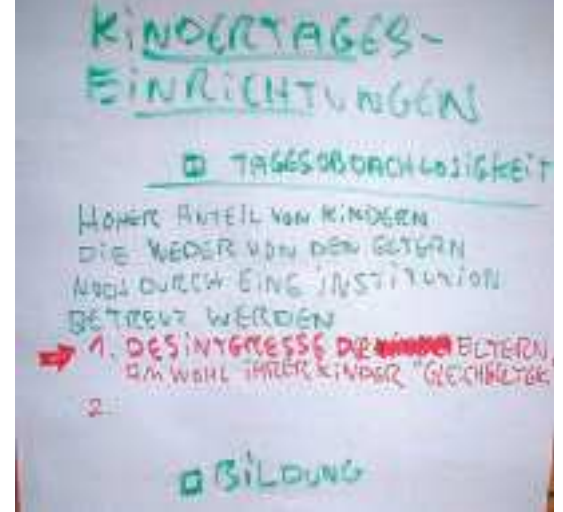 KINDERTAGES-
EINRICHTUNGEN
TAGESOBDACHLOSIGKEIT
HOHER ANTEIL VON KINDERN
DIE WEDER VON DEN ELTERN
NOCH DURCH EINE INSTITUTION
BETREUT WERDEN
1. DESINTERESSE DER ELTERN,
AM WOHL IHRER KINDER "
2.
BILDUNG